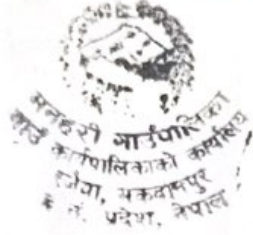 मनहरी गाउँपालिका
गाउँ कार्यपालिकाको कार्यालय
मकवानपुर
प्रदेश, नेपाल